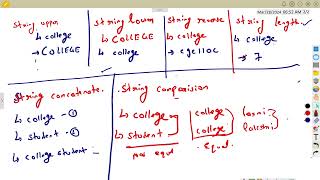 Mar/28/2024 08:52 AM 2/2
String upper
↳ college
→ COLLEGE
String lower
↳ COLLEGE
↳ college
String reverse
↳ college
→ egelloc
String length
↳ college
→ 7
String concatenate
↳ college - ①
↳ student - ②
↳ college student
String comparision
↳ college
↳ student
not equal
college
college
equal